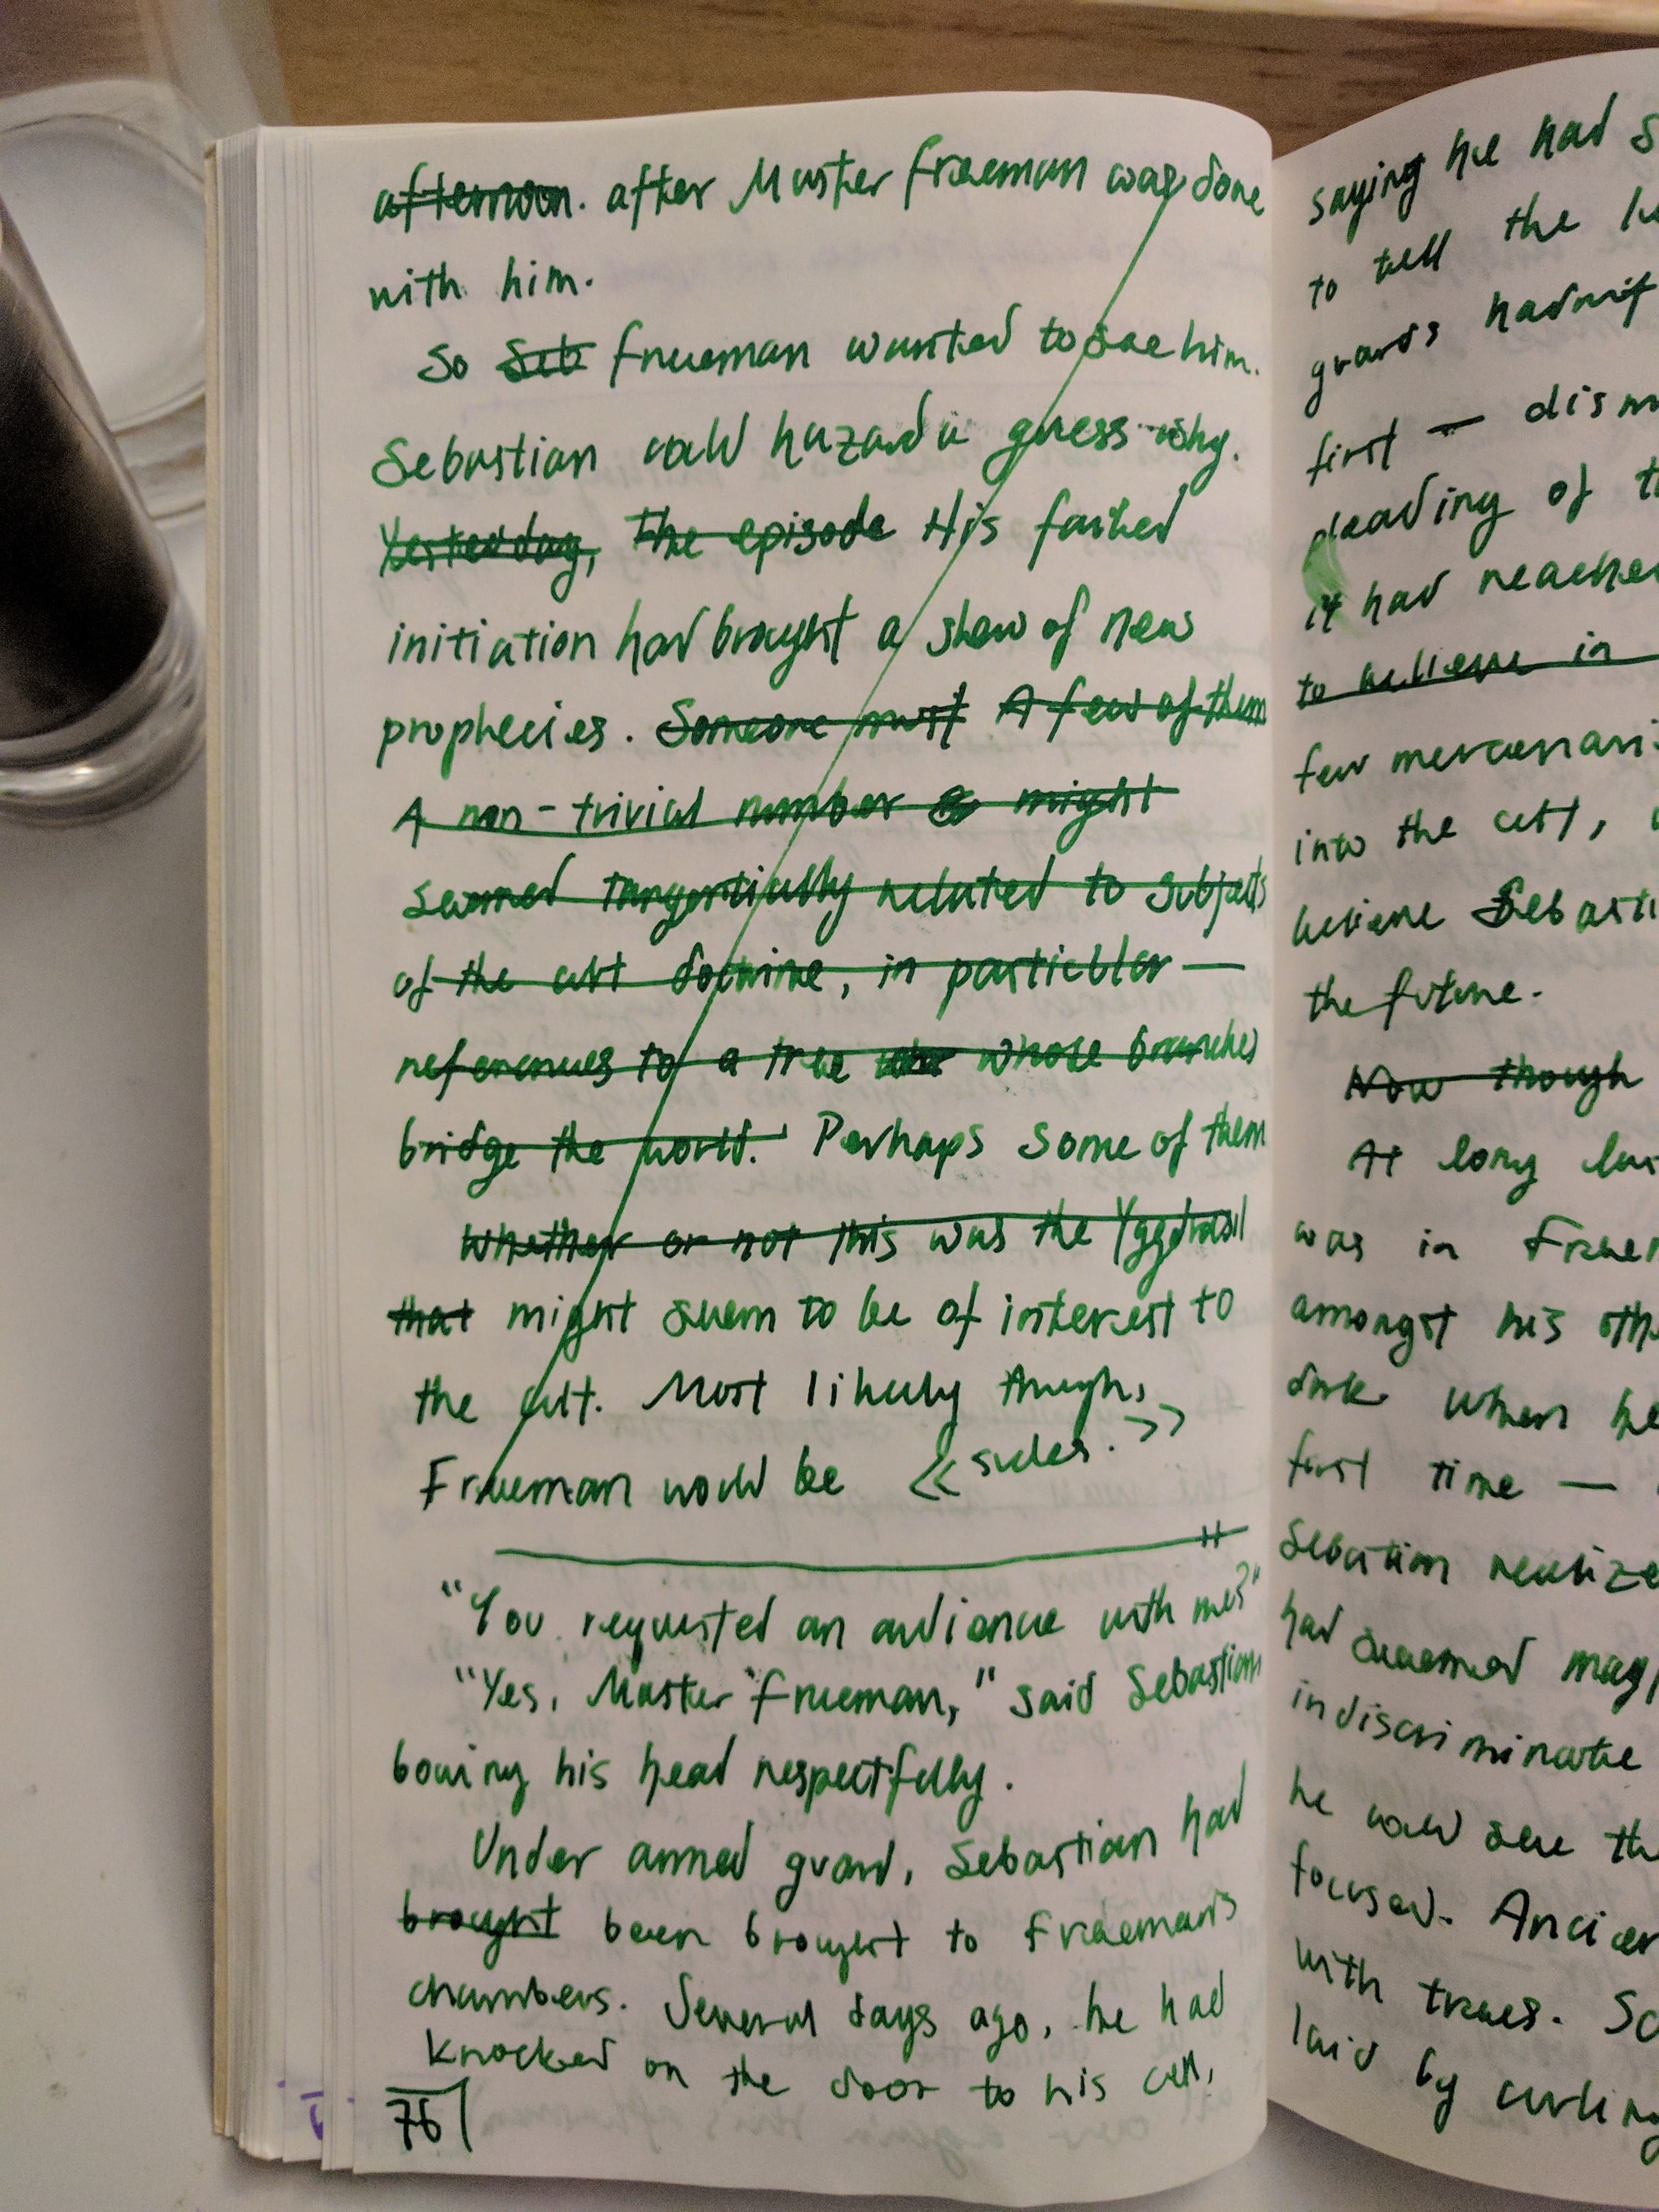 afternoon. after Master Freeman was done
with him.
So Seb Freeman wanted to see him.
Sebastian could hazard a guess why.
Yesterday, The episode His failed
initiation had brought a slew of new
prophecies. Someone must A few of them
A non-trivial number might
seemed tangentially related to subjects
of the cult doctrine, in particular —
references to a tree whose branches
bridge the world. Perhaps some of them
Whether or not this was the Yggdrasil
that might seem to be of interest to
the cult. Most likely though,
Freeman would be << sides. >>
"You requested an audience with me?"
"Yes, Master Freeman," said Sebastian
bowing his head respectfully.
Under armed guard, Sebastian had
brought been brought to Freeman's
chambers. Several days ago, he had
knocked on the door to his cell,
76
saying he had
to tell the
guards hadn't
first —
pleading of
it had
to believe in
few
into the cult,
believe
the future.
Now though
At long
was in
amongst his
dark when
first time —
Sebastian
had seemed
indiscriminate
he could see
focused.
with trees.
laid by